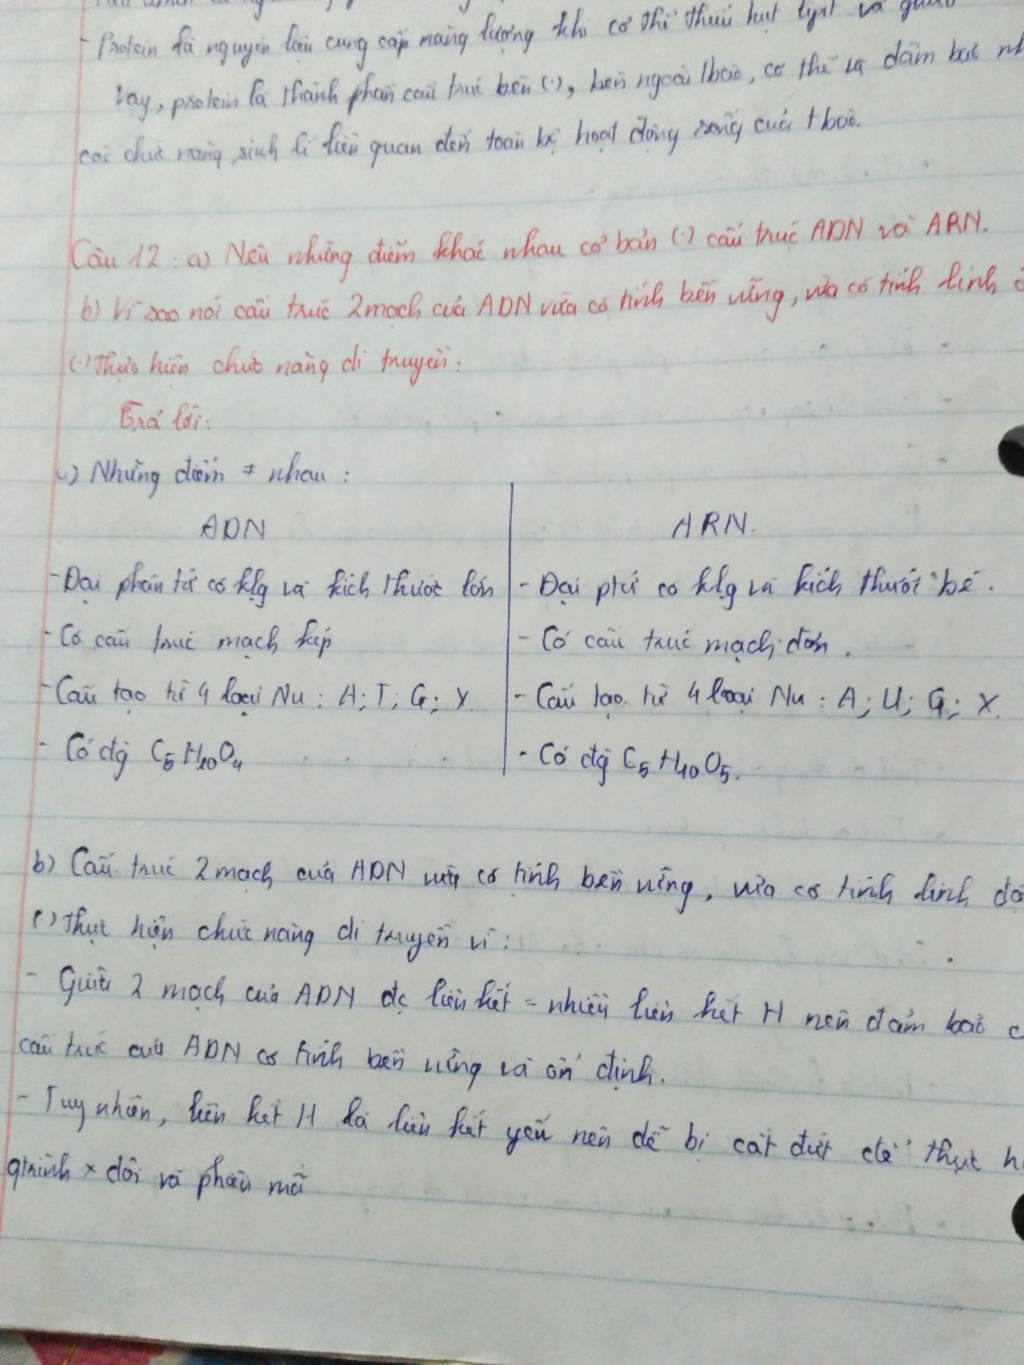 - Protein là nguyên liệu cung cấp năng lượng khi cơ thể thiếu hụt lipit và
vậy, protein là thành phần cấu trúc bên (.), bên ngoài tbào, cơ thể và đảm bảo
các chức năng sinh lí liên quan đến toàn bộ hoạt động sống của tbào.
Câu 12: a) Nêu những điểm khác nhau cơ bản (.) cấu trúc ADN và ARN.
b) Vì sao nói cấu trúc 2 mạch của ADN vừa có tính bền vững, vừa có tính linh
(.) thực hiện chức năng di truyền:
Trả lời:
a) Những điểm ≠ nhau:
ADN
- Đại phân tử có klg và kích thước lớn
- Có cấu trúc mạch kép
- Cấu tạo từ 4 loại Nu: A; T; G; X.
- Có đg C5H10O4
ARN.
- Đại ptử có klg và kích thước bé.
- Có cấu trúc mạch đơn.
- Cấu tạo từ 4 loại Nu: A; U; G; X.
- Có đg C5H10O5.
b) Cấu trúc 2 mạch của ADN vừa có tính bền vững, vừa có tính linh
(.) thực hiện chức năng di truyền vì:
- Giữa 2 mạch của ADN đc liên kết = nhiều liên kết H nên đảm bảo
cấu trúc của ADN có tính bền vững và ổn định.
- Tuy nhiên, liên kết H là liên kết yếu nên dễ bị cắt đứt để thực
qtrình x đôi và phiên mã